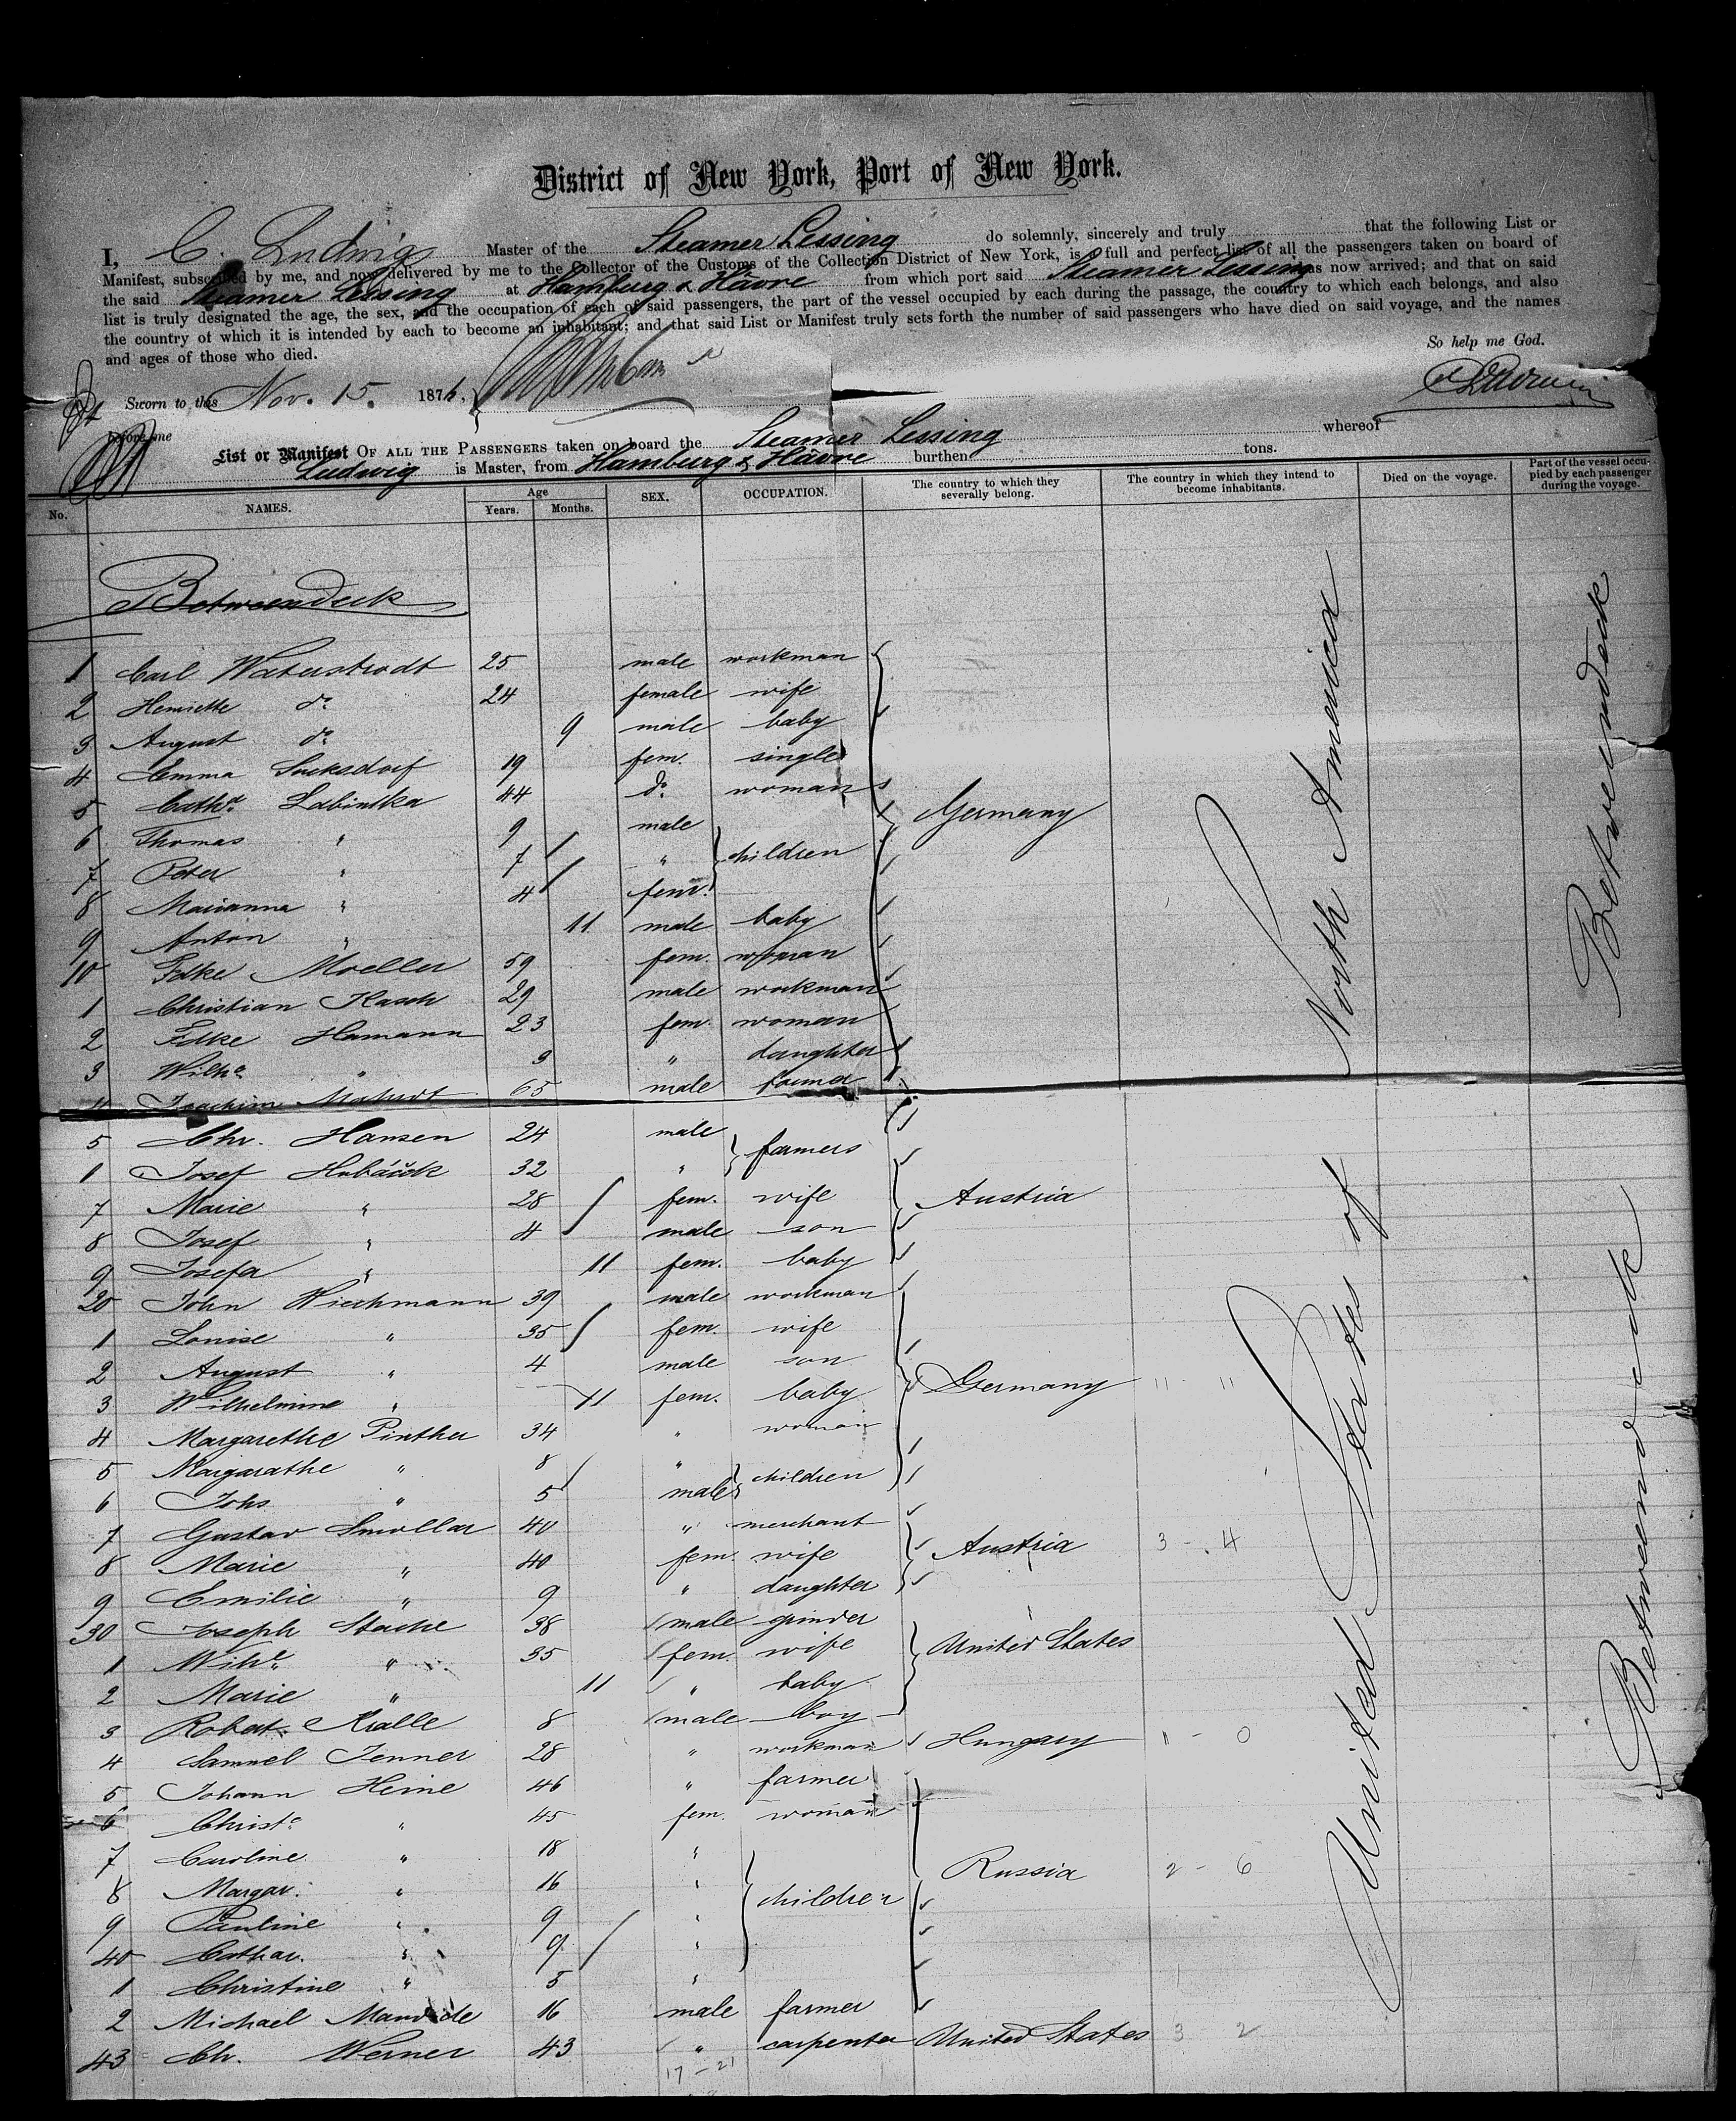 District of New York, Port of New York.
I, C. Ludwig Master of the Steamer Lessing do solemnly, sincerely and truly that the following List or
Manifest, subscribed by me, and now delivered by me to the Collector of the Customs of the Collection District of New York, is a full and perfect list of all the passengers taken on board of
the said Steamer Lessing at Hamburg & Hâvre from which port said Steamer Lessing has now arrived; and that on said
list is truly designated the age, the sex, and the occupation of each of said passengers, the part of the vessel occupied by each during the passage, the country to which each belongs, and also
the country of which it is intended by each to become an inhabitant; and that said List or Manifest truly sets forth the number of said passengers who have died on said voyage, and the names
and ages of those who died.
So help me God.
Sworn to this Nov. 15. 1876,
before me
List or Manifest OF ALL THE PASSENGERS taken on board the Steamer Lessing whereof
Ludwig is Master, from Hamburg & Hâvre burthen tons.
No. NAMES. Age Years. Months. SEX. OCCUPATION. The country to which they severally belong. The country in which they intend to become inhabitants. Died on the voyage. Part of the vessel occupied by each passenger during the voyage.
Betweendeck
1 Carl Waterstradt 25 male workman
2 Henriette do 24 female wife
3 August do 9 male baby
4 Emma Sucksdorf 19 fem. single
5 Cathe. Labintka 44 do woman
6 Thomas " 9 male
Germany
7 Peter " 7 " children
8 Marianna " 4 fem.
9 Anton " 11 male baby
10 Fdke Moeller 59 fem. woman
1 Christian Kasch 29 male workman
2 Fdke Hamann 23 fem. woman
3 Wilhe " 3 " daughter
4 Joachim 65 male farmer
5 Chr. Hansen 24 male farmers
1 Josef Hubáček 32 "
7 Marie " 28 fem. wife Austria
8 Josef " 4 male son
9 Josefa " 11 fem. baby
20 John Wiechmann 39 male workman
1 Louise " 35 fem. wife
2 August " 4 male son
3 Wilhelmine " 11 fem. baby Germany 11 - 11
4 Margarethe Pinther 34 " woman
5 Margarathe " 8 " children
6 Johs " 5 male
7 Gustav Smollar 40 " merchant
8 Marie " 40 fem. wife Austria 3 - 4
9 Emilie " 9 " daughter
30 Joseph Stache 38 male grinder
1 Wihe " 35 fem. wife United States
2 Marie " 11 " baby
3 Robat Kralle 8 male boy
4 Samuel Jenner 28 " workman Hungary 1 - 0
5 Johann Heine 46 " farmer
6 Christe " 45 fem. woman
7 Caroline " 18 "
8 Margar. " 16 " children Russia 2 - 6
9 Pauline " 9 "
40 Cathar. " 9 "
1 Christine " 5 "
2 Michael 16 male farmer
43 Ch. Werner 43 " carpenter United States 3 2
17 - 21
United States of North America
Betweendeck
Betweendeck